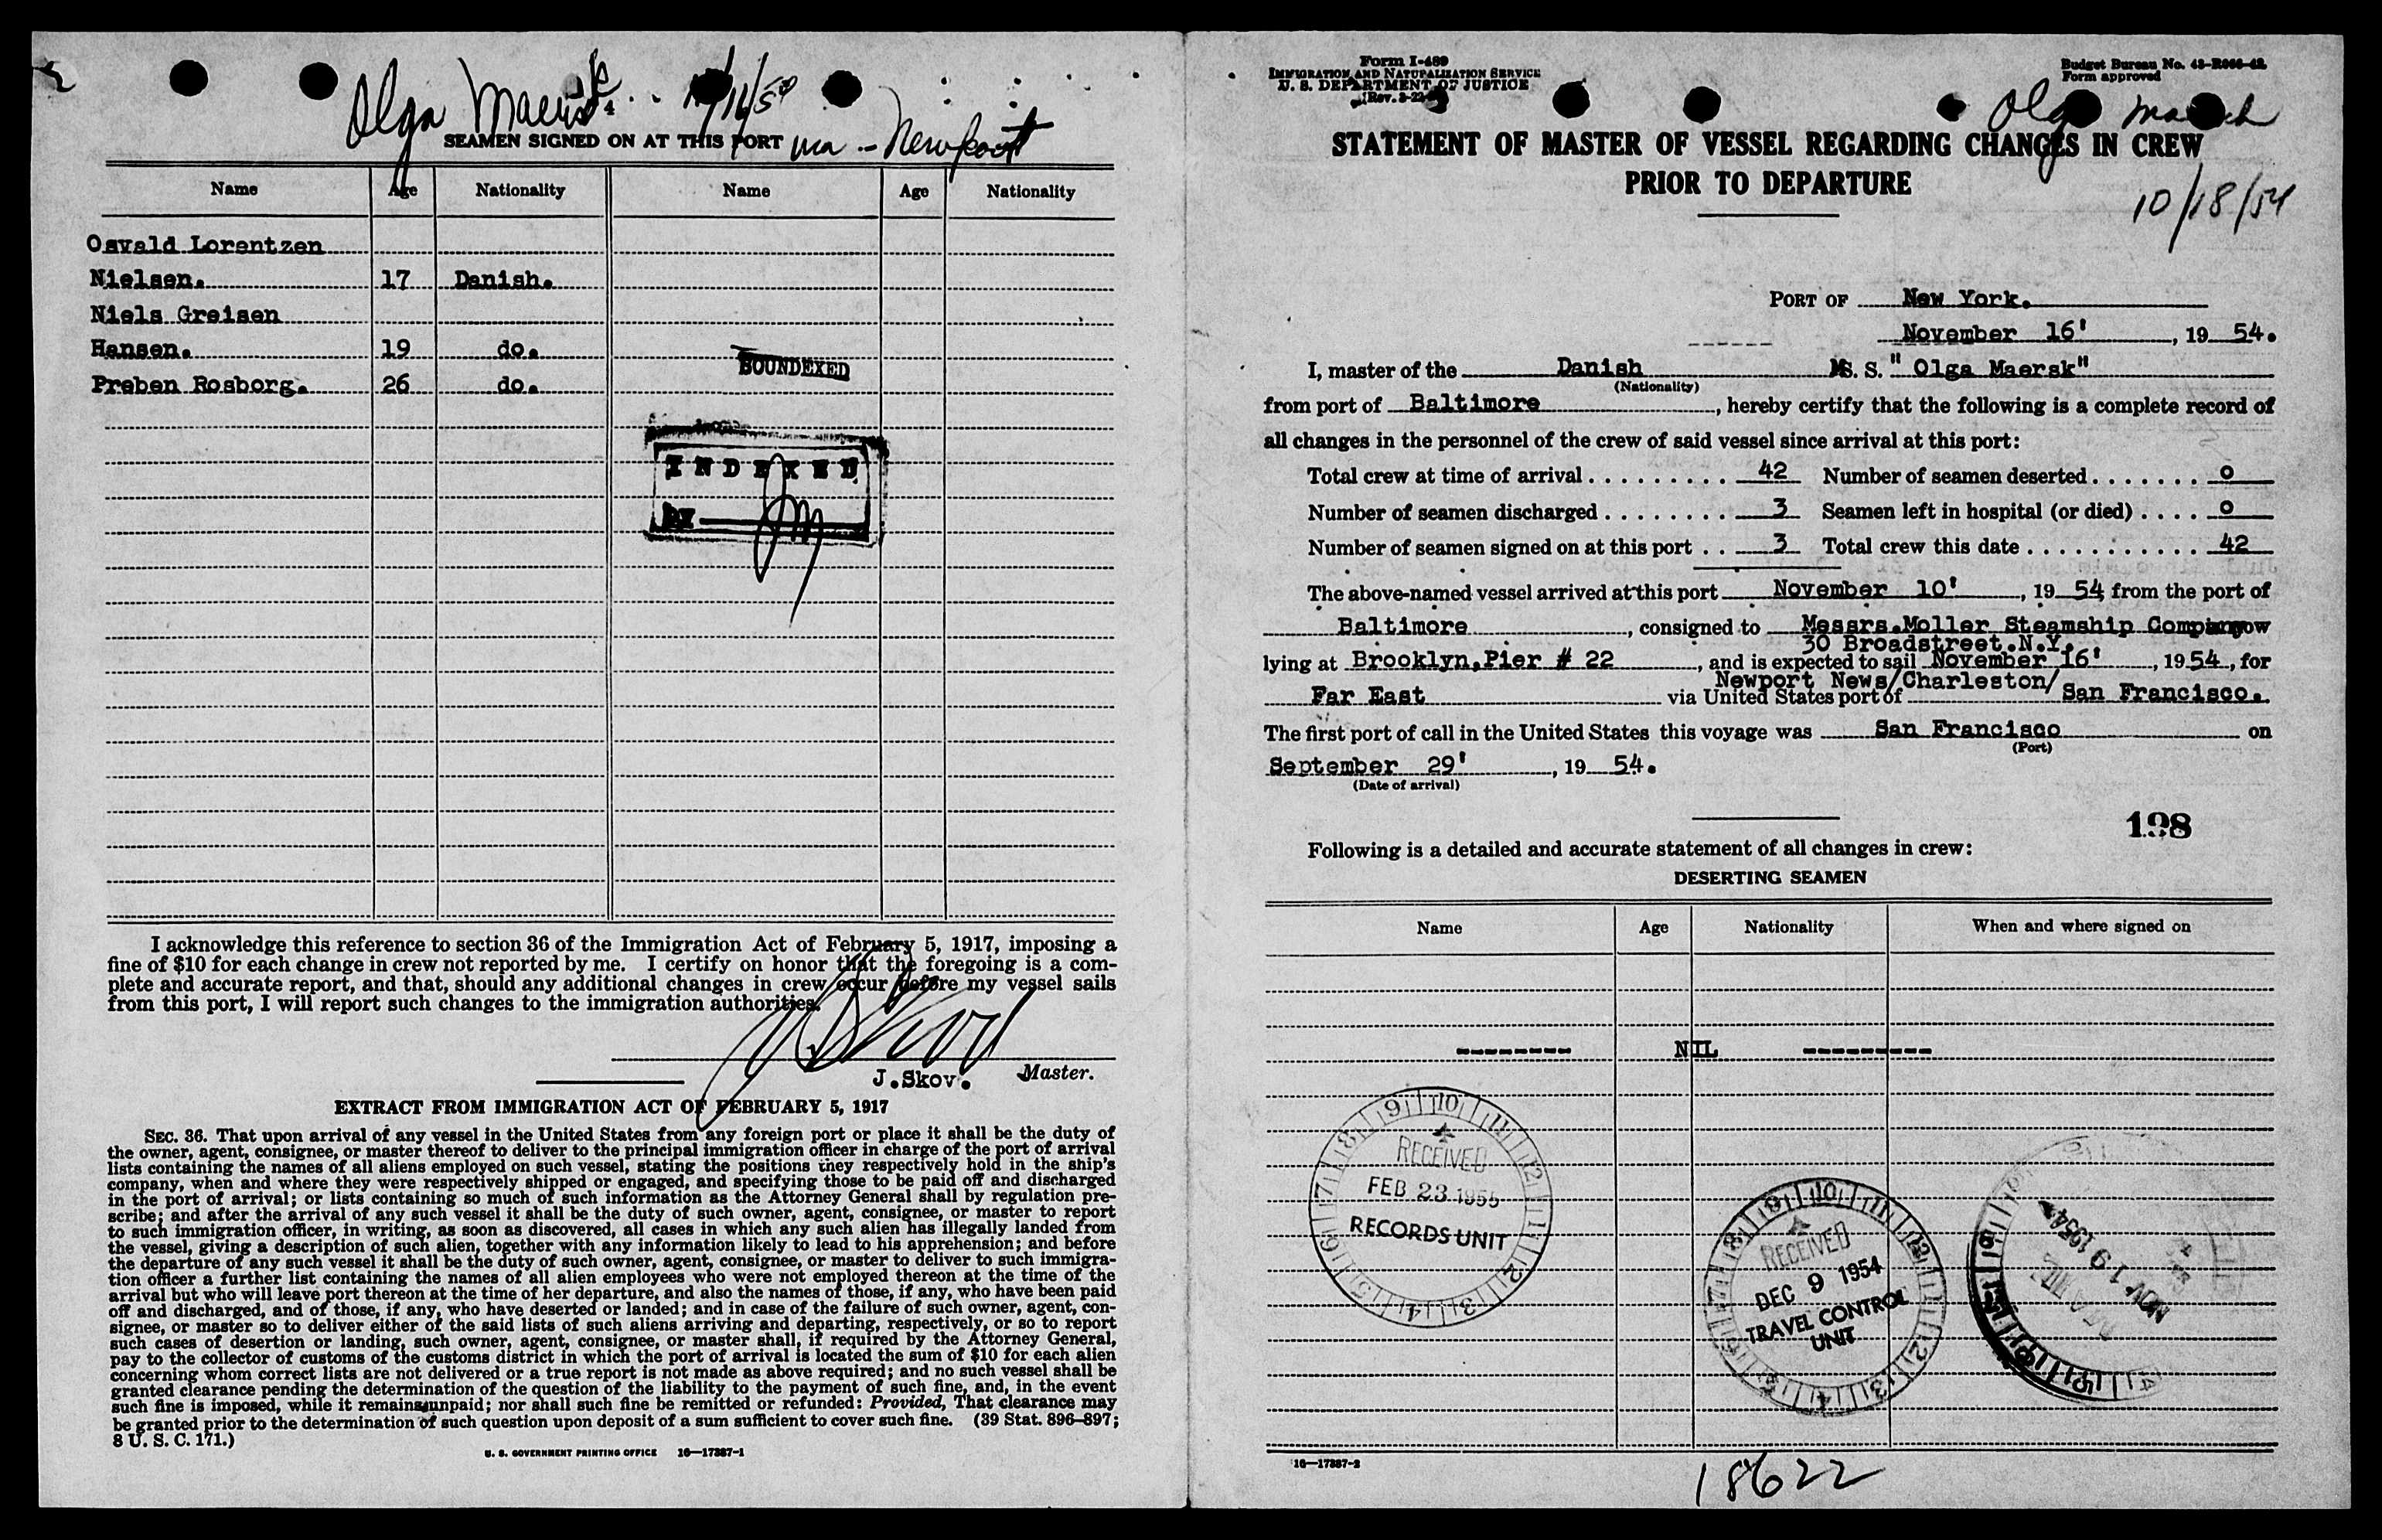 Olga Maersk
SEAMEN SIGNED ON AT THIS PORT via - Newport
Name Age Nationality Name Age Nationality
Osvald Lorentzen
Nielsen. 17 Danish.
Niels Greisen
Hansen. 19 do.
Preben Rosborg. 26 do.
SOUNDEXED
INDEXED
BY
I acknowledge this reference to section 36 of the Immigration Act of February 5, 1917, imposing a
fine of $10 for each change in crew not reported by me. I certify on honor that the foregoing is a com-
plete and accurate report, and that, should any additional changes in crew occur before my vessel sails
from this port, I will report such changes to the immigration authorities.
J.Skov. Master.
EXTRACT FROM IMMIGRATION ACT OF FEBRUARY 5, 1917
SEC. 36. That upon arrival of any vessel in the United States from any foreign port or place it shall be the duty of
the owner, agent, consignee, or master thereof to deliver to the principal immigration officer in charge of the port of arrival
lists containing the names of all aliens employed on such vessel, stating the positions they respectively hold in the ship's
company, when and where they were respectively shipped or engaged, and specifying those to be paid off and discharged
in the port of arrival; or lists containing so much of such information as the Attorney General shall by regulation pre-
scribe; and after the arrival of any such vessel it shall be the duty of such owner, agent, consignee, or master to report
to such immigration officer, in writing, as soon as discovered, all cases in which any such alien has illegally landed from
the vessel, giving a description of such alien, together with any information likely to lead to his apprehension; and before
the departure of any such vessel it shall be the duty of such owner, agent, consignee, or master to deliver to such immigra-
tion officer a further list containing the names of all alien employees who were not employed thereon at the time of the
arrival but who will leave port thereon at the time of her departure, and also the names of those, if any, who have been paid
off and discharged, and of those, if any, who have deserted or landed; and in case of the failure of such owner, agent, con-
signee, or master so to deliver either of the said lists of such aliens arriving and departing, respectively, or so to report
such cases of desertion or landing, such owner, agent, consignee, or master shall, if required by the Attorney General,
pay to the collector of customs of the customs district in which the port of arrival is located the sum of $10 for each alien
concerning whom correct lists are not delivered or a true report is not made as above required; and no such vessel shall be
granted clearance pending the determination of the question of the liability to the payment of such fine, and, in the event
such fine is imposed, while it remains unpaid; nor shall such fine be remitted or refunded: Provided, That clearance may
be granted prior to the determination of such question upon deposit of a sum sufficient to cover such fine. (39 Stat. 896-897;
8 U. S. C. 171.)
U. S. GOVERNMENT PRINTING OFFICE 16—17387-1
Form I-489
IMMIGRATION AND NATURALIZATION SERVICE
U. S. DEPARTMENT OF JUSTICE
Budget Bureau No. 43-R066-42
Form approved
Olga
STATEMENT OF MASTER OF VESSEL REGARDING CHANGES IN CREW
PRIOR TO DEPARTURE
10/18/54
PORT OF New York.
November 16' , 19 54.
I, master of the Danish MS. S. "Olga Maersk"
(Nationality)
from port of Baltimore , hereby certify that the following is a complete record of
all changes in the personnel of the crew of said vessel since arrival at this port:
Total crew at time of arrival . . . . . . . . . 42 Number of seamen deserted . . . . . . . 0
Number of seamen discharged . . . . . . . . 3 Seamen left in hospital (or died) . . . . 0
Number of seamen signed on at this port . . 3 Total crew this date . . . . . . . . . . . 42
The above-named vessel arrived at this port November 10' , 19 54, from the port of
Baltimore , consigned to Messrs.Moller Steamship Company now
30 Broadstreet.N.Y.
lying at Brooklyn,Pier # 22 , and is expected to sail November 16' , 19 54, for
Newport News/Charleston/
Far East via United States port of San Francisco.
The first port of call in the United States this voyage was San Francisco on
(Port)
September 29' , 19 54.
(Date of arrival)
198
Following is a detailed and accurate statement of all changes in crew:
DESERTING SEAMEN
Name Age Nationality When and where signed on
-------- NIL ---------
RECEIVED
FEB 23 1955
RECORDS UNIT
RECEIVED
DEC 9 1954
TRAVEL CONTROL
UNIT
NOV 19 1954
16—17387-2
18622